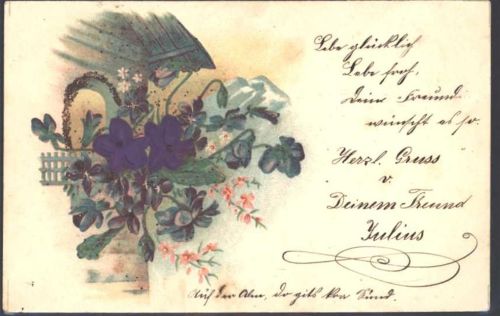 Lebe glücklich
Lebe froh,
Dein Freund
wünscht es so.
Herzl. Gruss
v.
Deinem Freund
Julius
Auf der Alm, do gits koa Sünd.